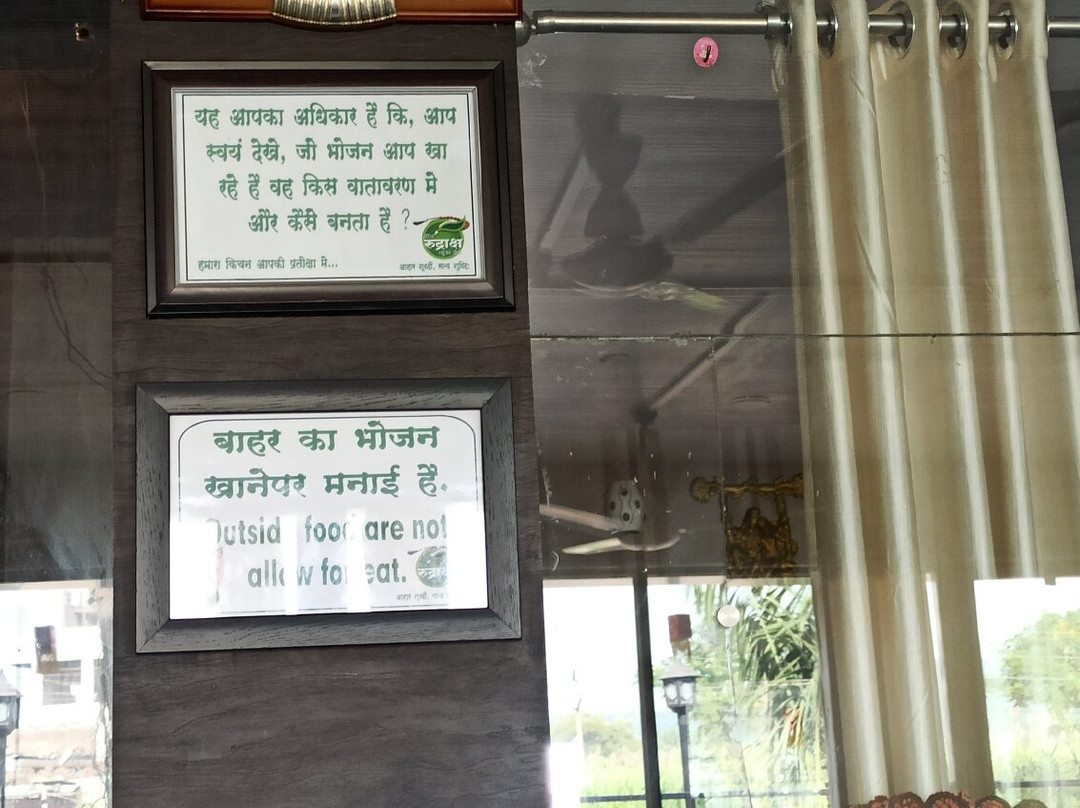 यह आपका अधिकार है कि, आप
स्वयं देखे, जो भोजन आप खा
रहे है वह किस वातावरण मे
और कैसे बनता है ?
रुद्राक्ष
हमारा किचन आपकी प्रतीक्षा मे...
बाहर का भोजन
खानेपर मनाई है.
Outside food are not
allow for eat.